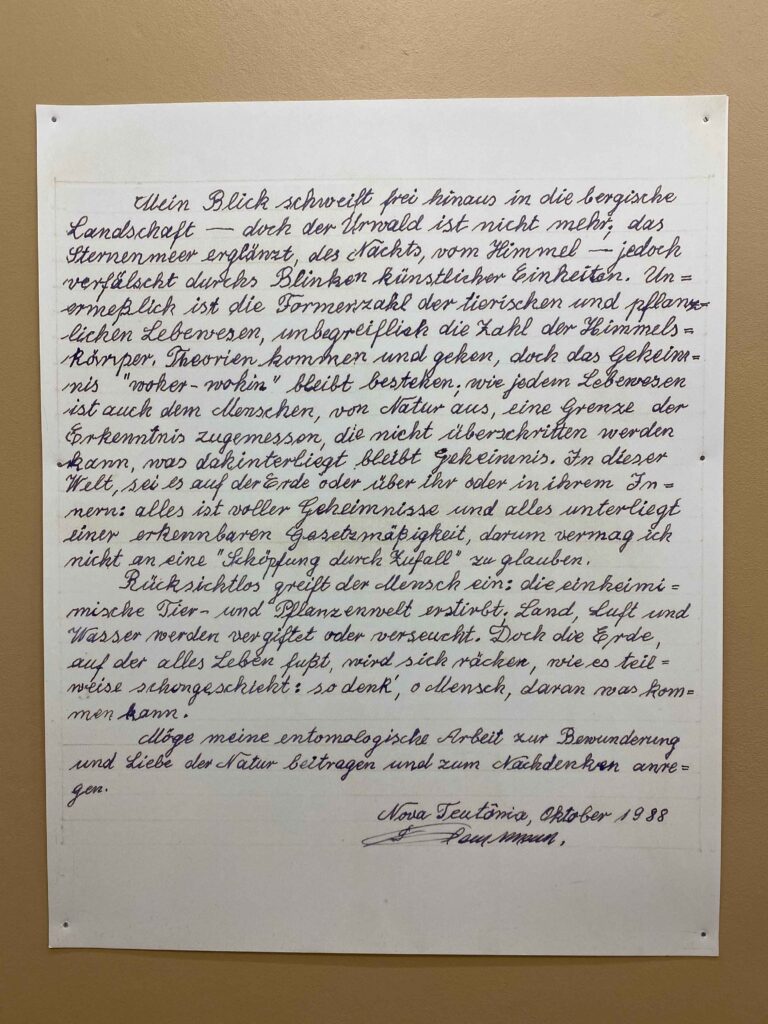 Mein Blick schweift frei hinaus in die bergische
Landschaft — doch der Urwald ist nicht mehr; das
Sternenmeer erglänzt, des Nachts, vom Himmel — jedoch
verfälscht durchs Blinken künstlicher Einheiten. Un=
ermeßlich ist die Formenzahl der tierischen und pflanz=
lichen Lebewesen, unbegreiflich die Zahl der Himmels=
körper. Theorien kommen und gehen, doch das Geheim=
nis "woher - wohin" bleibt bestehen; wie jedem Lebewesen
ist auch dem Menschen, von Natur aus, eine Grenze der
Erkenntnis zugemessen, die nicht überschritten werden
kann, was dahinterliegt bleibt Geheimnis. In dieser
Welt, sei es auf der Erde oder über ihr oder in ihrem In=
nern: alles ist voller Geheimnisse und alles unterliegt
einer erkennbaren Gesetzmäßigkeit, darum vermag ich
nicht an eine "Schöpfung durch Zufall" zu glauben.
Rücksichtlos greift der Mensch ein: die einheimi=
mische Tier- und Pflanzenwelt erstirbt; Land, Luft und
Wasser werden vergiftet oder verseucht. Doch die Erde,
auf der alles Leben fußt, wird sich rächen, wie es teil=
weise schon geschieht: so denk', o Mensch, daran was kom=
men kann.
Möge meine entomologische Arbeit zur Bewunderung
und Liebe der Natur beitragen und zum Nachdenken anre=
gen.
Nova Teutônia, Oktober 1988